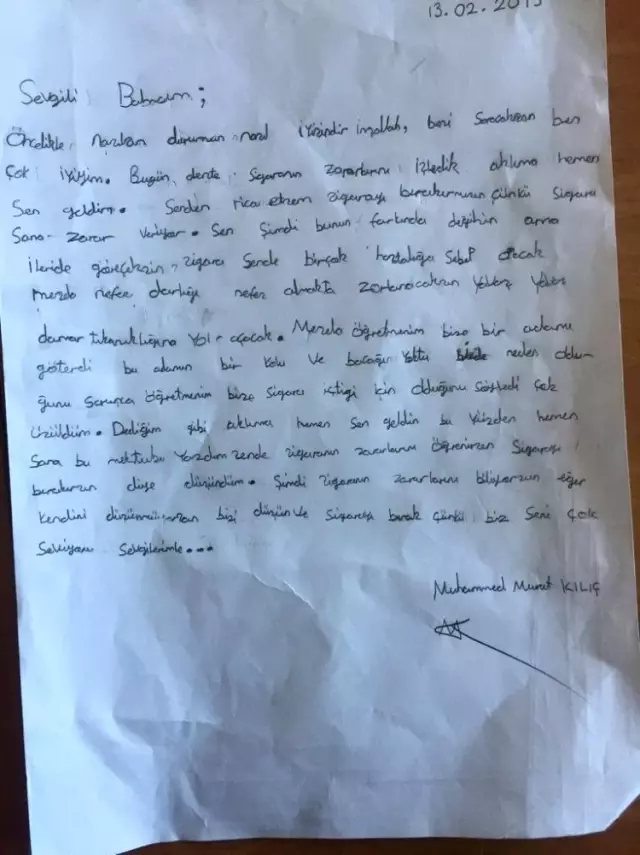 13.02.2015
Sevgili Babacım;
Öncelikle nasılsın diyorum iyisindir inşallah, beni soracaksan ben
çok iyiyim. Bugün derste sigaranın zararlarını izledik aklıma hemen
Sen geldin. Senden rica etsem sigarayı bırakırmısın çünkü Sigara
Sana zarar veriyor. Sen Şimdi bunun farkında değilsin ama
ileride göreceksin, sigara Sende birçok hastalığa Sebep olacak
mesela nefes darlığı nefes almakta zorlanacaksın yavaş yavaş
damar tıkanıklığına yol açacak. Mesela öğretmenim bize bir adamı
gösterdi bu adamın bir kolu ve bacağı yoktu neden oldu-
ğunu sorunca öğretmenim bize Sigara içtiği için olduğunu söyledi çok
üzüldüm. Dediğim gibi aklıma hemen Sen geldin bu yüzden hemen
Sana bu mektubu yazdım sende sigaranın zararlarını öğrenirsen Sigarayı
bırakırsın diye düşündüm. Şimdi sigaranın zararlarını biliyorsun eğer
kendini düşünmüyorsan bizi düşün ve Sigarayı bırak çünkü biz Seni çok
Seviyoruz Sevgilerimle...
Muhammed Murat KILIÇ